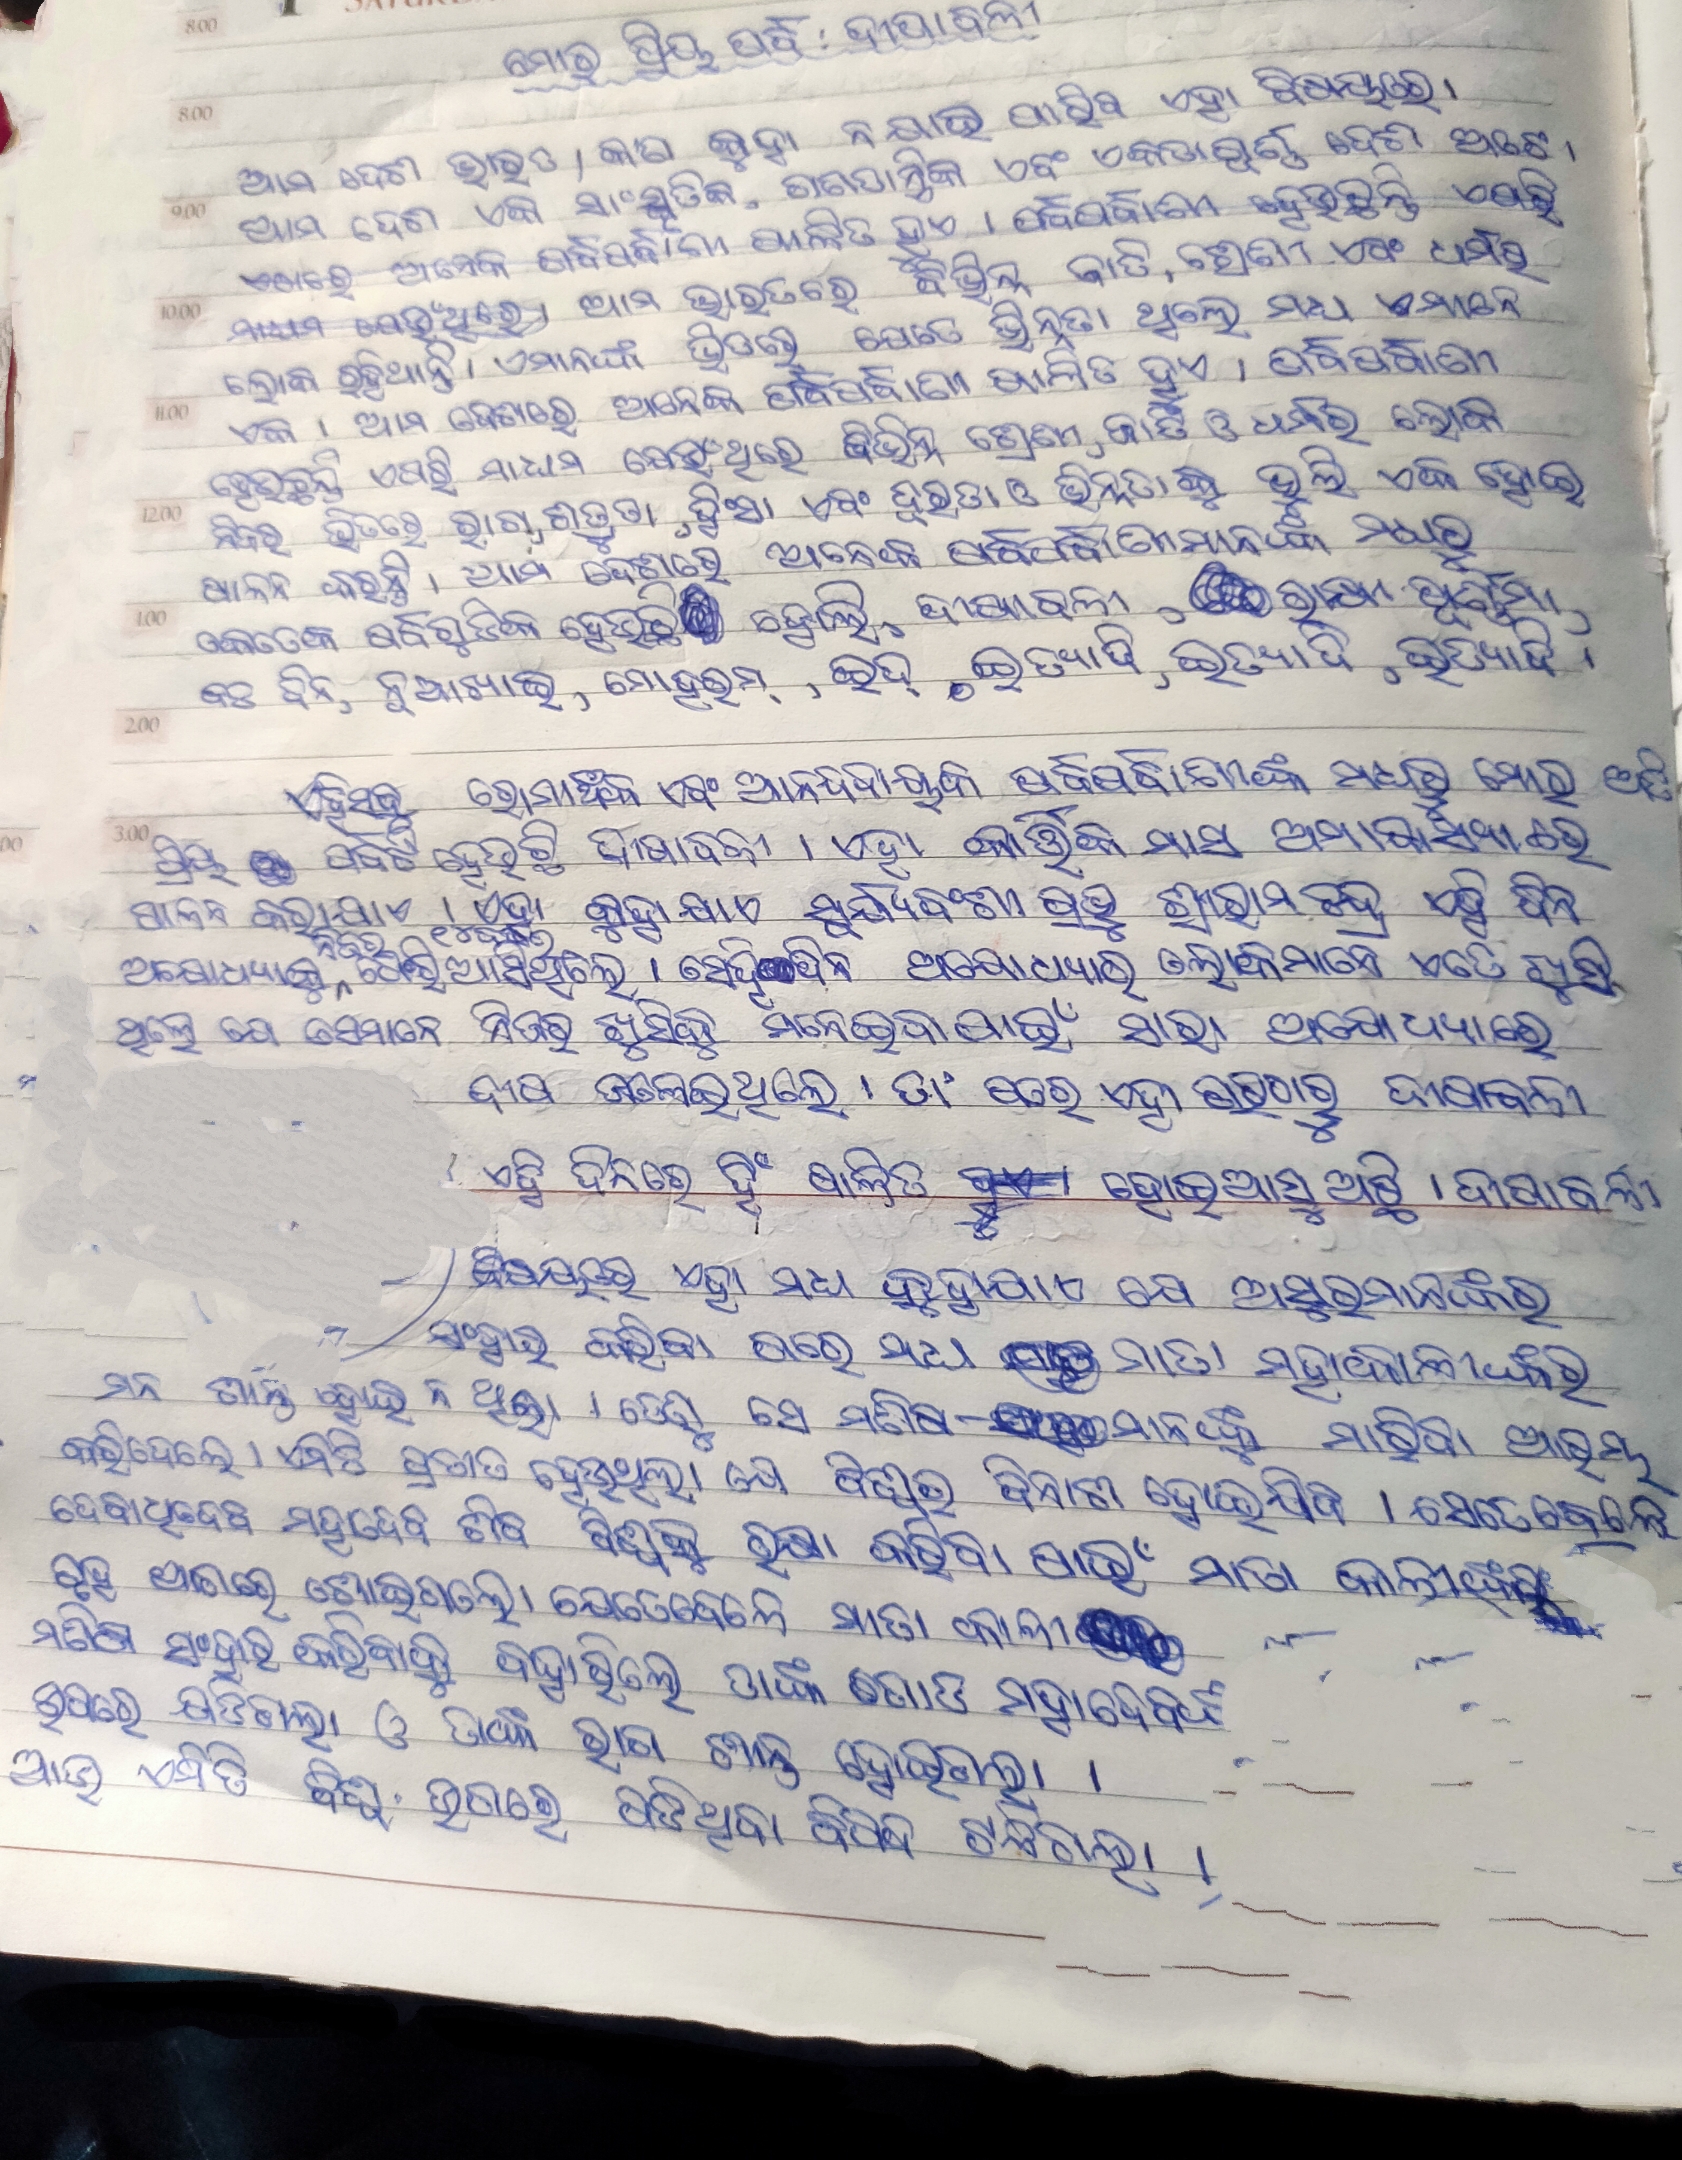 8.00
ମୋର ପ୍ରିୟ ପର୍ବ : ଦୀପାବଳୀ
8.00
ଆମ ଦେଶ ଭାରତ, କଣ କୁହା ନ ଯାଇ ପାରିବ ଏହା ବିଷୟରେ।
ଆମ ଦେଶ ଏକ ସାଂସ୍କୃତିକ, ଗଣତାନ୍ତ୍ରିକ ଏବଂ ଏକତାପୂର୍ଣ୍ଣ ଦେଶ ଅଟେ।
9.00
ଏଥିରେ ଅନେକ ପର୍ବପର୍ବାଣୀ ପାଳିତ ହୁଏ । ପର୍ବପର୍ବାଣୀ ହେଉଛନ୍ତି ଏପରି
ମାଧ୍ୟମ ଯେଉଁଥିରେ। ଆମ ଭାରତରେ ବିଭିନ୍ନ ଜାତି, ଶ୍ରେଣୀ ଏବଂ ଧର୍ମର
10.00
ଲୋକ ରହିଥାନ୍ତି। ଏମାନଙ୍କ ଭିତରେ ଯେତେ ଭିନ୍ନତା ଥିଲେ ମଧ୍ୟ ଏମାନେ
11.00
ଏକ । ଆମ ଦେଶରେ ଅନେକ ପର୍ବପର୍ବାଣୀ ପାଳିତ ହୁଏ । ପର୍ବପର୍ବାଣୀ
ହେଉଛନ୍ତି ଏପରି ମାଧ୍ୟମ ଯେଉଁଥିରେ ବିଭିନ୍ନ ଶ୍ରେଣୀ, ଜାତି ଓ ଧର୍ମର ଲୋକ
12.00
ନିଜର ଭିତରେ ରାଗ, ଶତ୍ରୁତା, ହିଂସା ଏବଂ ଦୂରତା ଓ ଭିନ୍ନତାକୁ ଭୁଲି ଏକ ହୋଇ
ପାଳନ କରନ୍ତି । ଆମ ଦେଶରେ ଅନେକ ପର୍ବପର୍ବାଣୀମାନଙ୍କ ମଧ୍ୟରୁ
1.00
କେତେକ ପର୍ବଗୁଡିକ ହେଉଛି ହୋଲି, ଦୀପାବଳୀ, ରାକ୍ଷୀ ପୂର୍ଣ୍ଣମା,
ବଡ ଦିନ, ନୂଆଖାଇ, ମୋହରମ୍, ଇଦ୍, ଇତ୍ୟାଦି, ଇତ୍ୟାଦି, ଇତ୍ୟାଦି ।
2.00
ଏହିସବୁ ରୋମାଞ୍ଚକ ଏବଂ ଆନନ୍ଦଦାୟକ ପର୍ବପର୍ବାଣୀଙ୍କ ମଧ୍ୟରୁ ମୋର ଅତି
3.00
ପ୍ରିୟ ପର୍ବଟି ହେଉଛି ଦୀପାବଳୀ । ଏହା କାର୍ତ୍ତିକ ମାସ ଅମାବାସ୍ୟାରେ
ପାଳନ କରାଯାଏ । ଏହା କୁହାଯାଏ ସୂର୍ଯ୍ୟବଂଶୀ ପ୍ରଭୁ ଶ୍ରୀରାମ ଚନ୍ଦ୍ର ଏହି ଦିନ
ନିଜର
ଅଯୋଧ୍ୟାକୁ ଫେରିଆସିଥିଲେ । ସେହି ଦିନ ଅଯୋଧ୍ୟାର ଲୋକମାନେ ଏତେ ଖୁସି
ଥିଲେ ଯେ ସେମାନେ ନିଜର ଖୁସିକୁ ମନେଇବାପାଇଁ ସାରା ଅଯୋଧ୍ୟାରେ
ଦୀପ ଜାଳେଇଥିଲେ । ତା' ପରେ ଏହା ପରଠାରୁ ଦୀପାବଳୀ
ଏହି ଦିନରେ ହିଁ ପାଳିତ ହୁଏ। ହୋଇଆସୁଅଛି । ଦୀପାବଳୀ
ବିଷୟରେ ଏହା ମଧ୍ୟ କୁହାଯାଏ ଯେ ଅସୁରମାନଙ୍କର
ସଂହାର କରିବା ପରେ ମଧ୍ୟ ମାତା ମହାକାଳୀଙ୍କର
ମନ ଶାନ୍ତ ହୋଇ ନ ଥିଲା । ତେଣୁ ସେ ମଣିଷ-ମାନଙ୍କୁ ମାରିବା ଆରମ୍ଭ
କରିଦେଲେ । ଏମିତି ପ୍ରତୀତ ହେଉଥିଲା ଯେ ବିଶ୍ୱର ବିନାଶ ହୋଇଯିବ । ସେତେବେଳେ
ଦେବାଧିଦେବ ମହାଦେବ ଶିବ ବିଶ୍ୱକୁ ରକ୍ଷା କରିବା ପାଇଁ ମାତା କାଳୀଙ୍କ
ଗୃହ ଆଗରେ ଶୋଇଗଲେ। ଯେତେବେଳେ ମାତା କାଳୀ
ମଣିଷ ସଂହାର କରିବାକୁ ବାହାରିଲେ ତାଙ୍କ ଗୋଡ ମହାଦେବଙ୍କ
ଉପରେ ପଡିଗଲା ଓ ତାଙ୍କ ରାଗ ଶାନ୍ତ ହୋଇଗଲା ।
ଆଉ ଏମିତି ବିଶ୍ୱ ଉପରେ ପଡିଥିବା ବିପଦ ଟଳିଗଲା ।